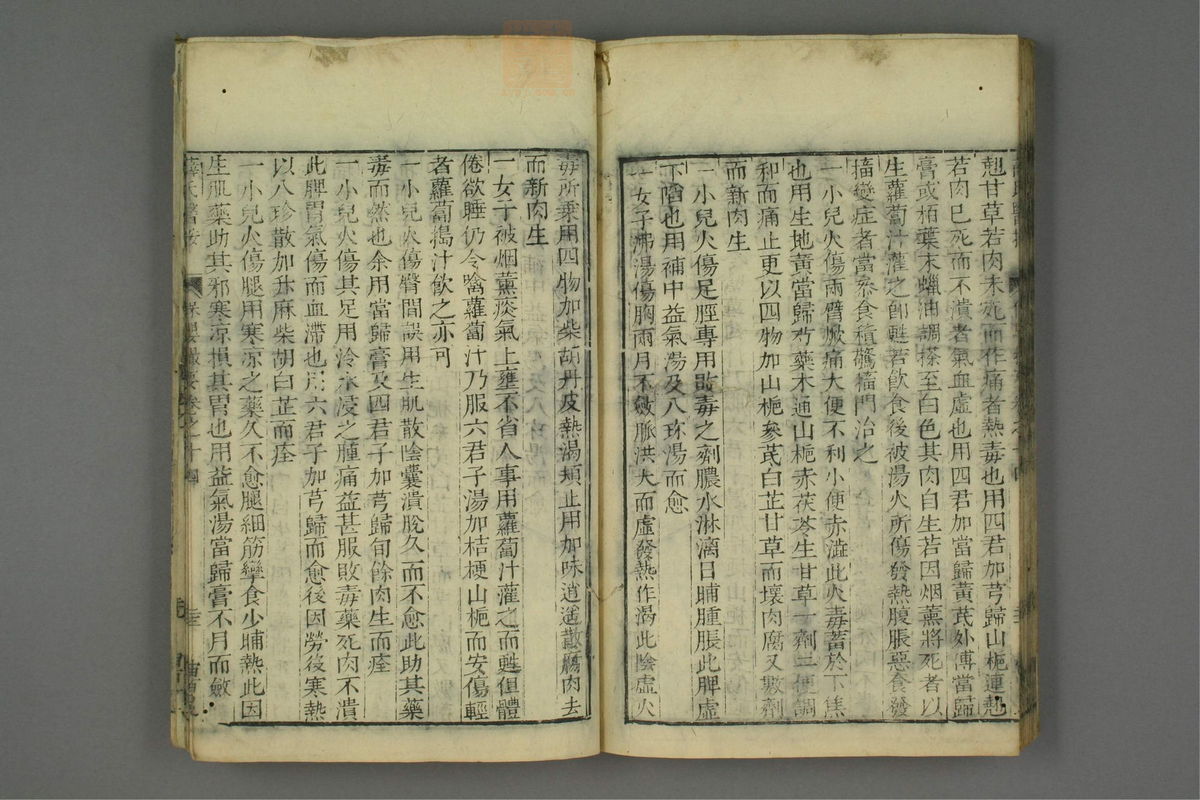 翹甘草若肉未死而作痛者熱毒也用四君加芎歸山梔連翹
若肉已死而不潰者氣血虛也用四君加當歸黃芪外傅當歸
膏或栢葉末蠟油調搽至白色其肉自生若因烟薰將死者以
生蘿蔔汁灌之卽甦若飲食後被湯火所傷發熱腹脹惡食發
搐變症者當叅食積驚搐門治之
一小兒火傷兩臂焮痛大便不利小便赤澁此火毒蓄於下焦
也用生地黃當歸芍藥木通山梔赤茯苓生甘草一劑二便調
和而痛止更以四物加山梔參芪白芷甘草而壞肉腐又數劑
而新肉生
一小兒火傷足脛專用敗毒之劑膿水淋漓日晡腫脹此脾虛
下陷也用補中益氣湯及八珎湯而愈
一女子沸湯傷胸兩月不斂脈洪大而虛發熱作渴此陰虛火
毒所乗用四物加柴胡丹皮熱渴頓止用加味逍遥散瘍肉去
而新肉生
一女子被烟薰痰氣上壅不省人事用蘿蔔汁灌之而甦但體
倦欲睡仍令噙蘿蔔汁乃服六君子湯加桔梗山梔而安傷輕
者蘿蔔搗汁飲之亦可
一小兒火傷臀間誤用生肌散陰囊潰脫久而不愈此助其藥
毒而然也余用當歸膏及四君子加芎歸旬餘肉生而痊
一小兒火傷其足用冷水浸之腫痛益甚服敗毒藥死肉不潰
此脾胃氣傷而血滯也用六君子加芎歸而愈後因勞後寒熱
以八珍散加升麻柴胡白芷而痊
一小兒火傷腿用寒凉之藥久不愈腿細筋攣食少晡熱此因
生肌藥助其邪寒凉損其胃也用益氣湯當歸膏不月而斂
薛氏醫按 保嬰撮要卷之十四